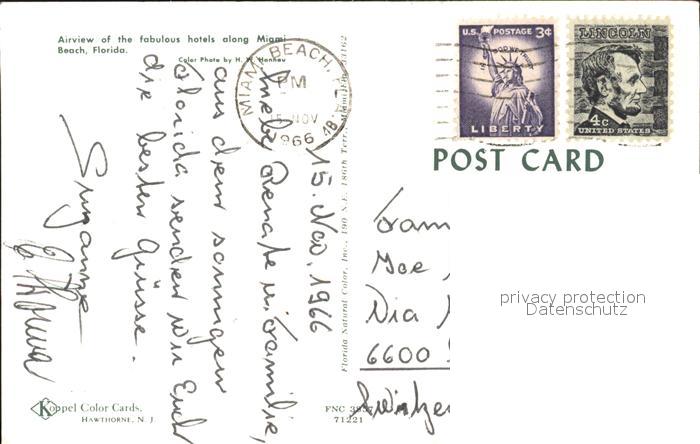 Airview of the fabulous hotels along Miami
Beach, Florida.
Color Photo by H. W. Hannau
MIAMI BEACH, FLA.
PM
15 NOV
1966
U.S. POSTAGE 3¢
IN GOD WE TRUST
LIBERTY
LINCOLN
4c
UNITED STATES
POST CARD
15. Nov. 1966
Liebe Renate u. Familie,
aus dem sonnigen
Florida senden wir Euch
die besten Grüsse.
Suzanne
Florida Natural Color, Inc., 190 N.E. 186th Terr., Miami, Fla. 33162
Fam
Via
6600
privacy protection
Datenschutz
Koppel Color Cards,
HAWTHORNE, N. J.
FNC
71221